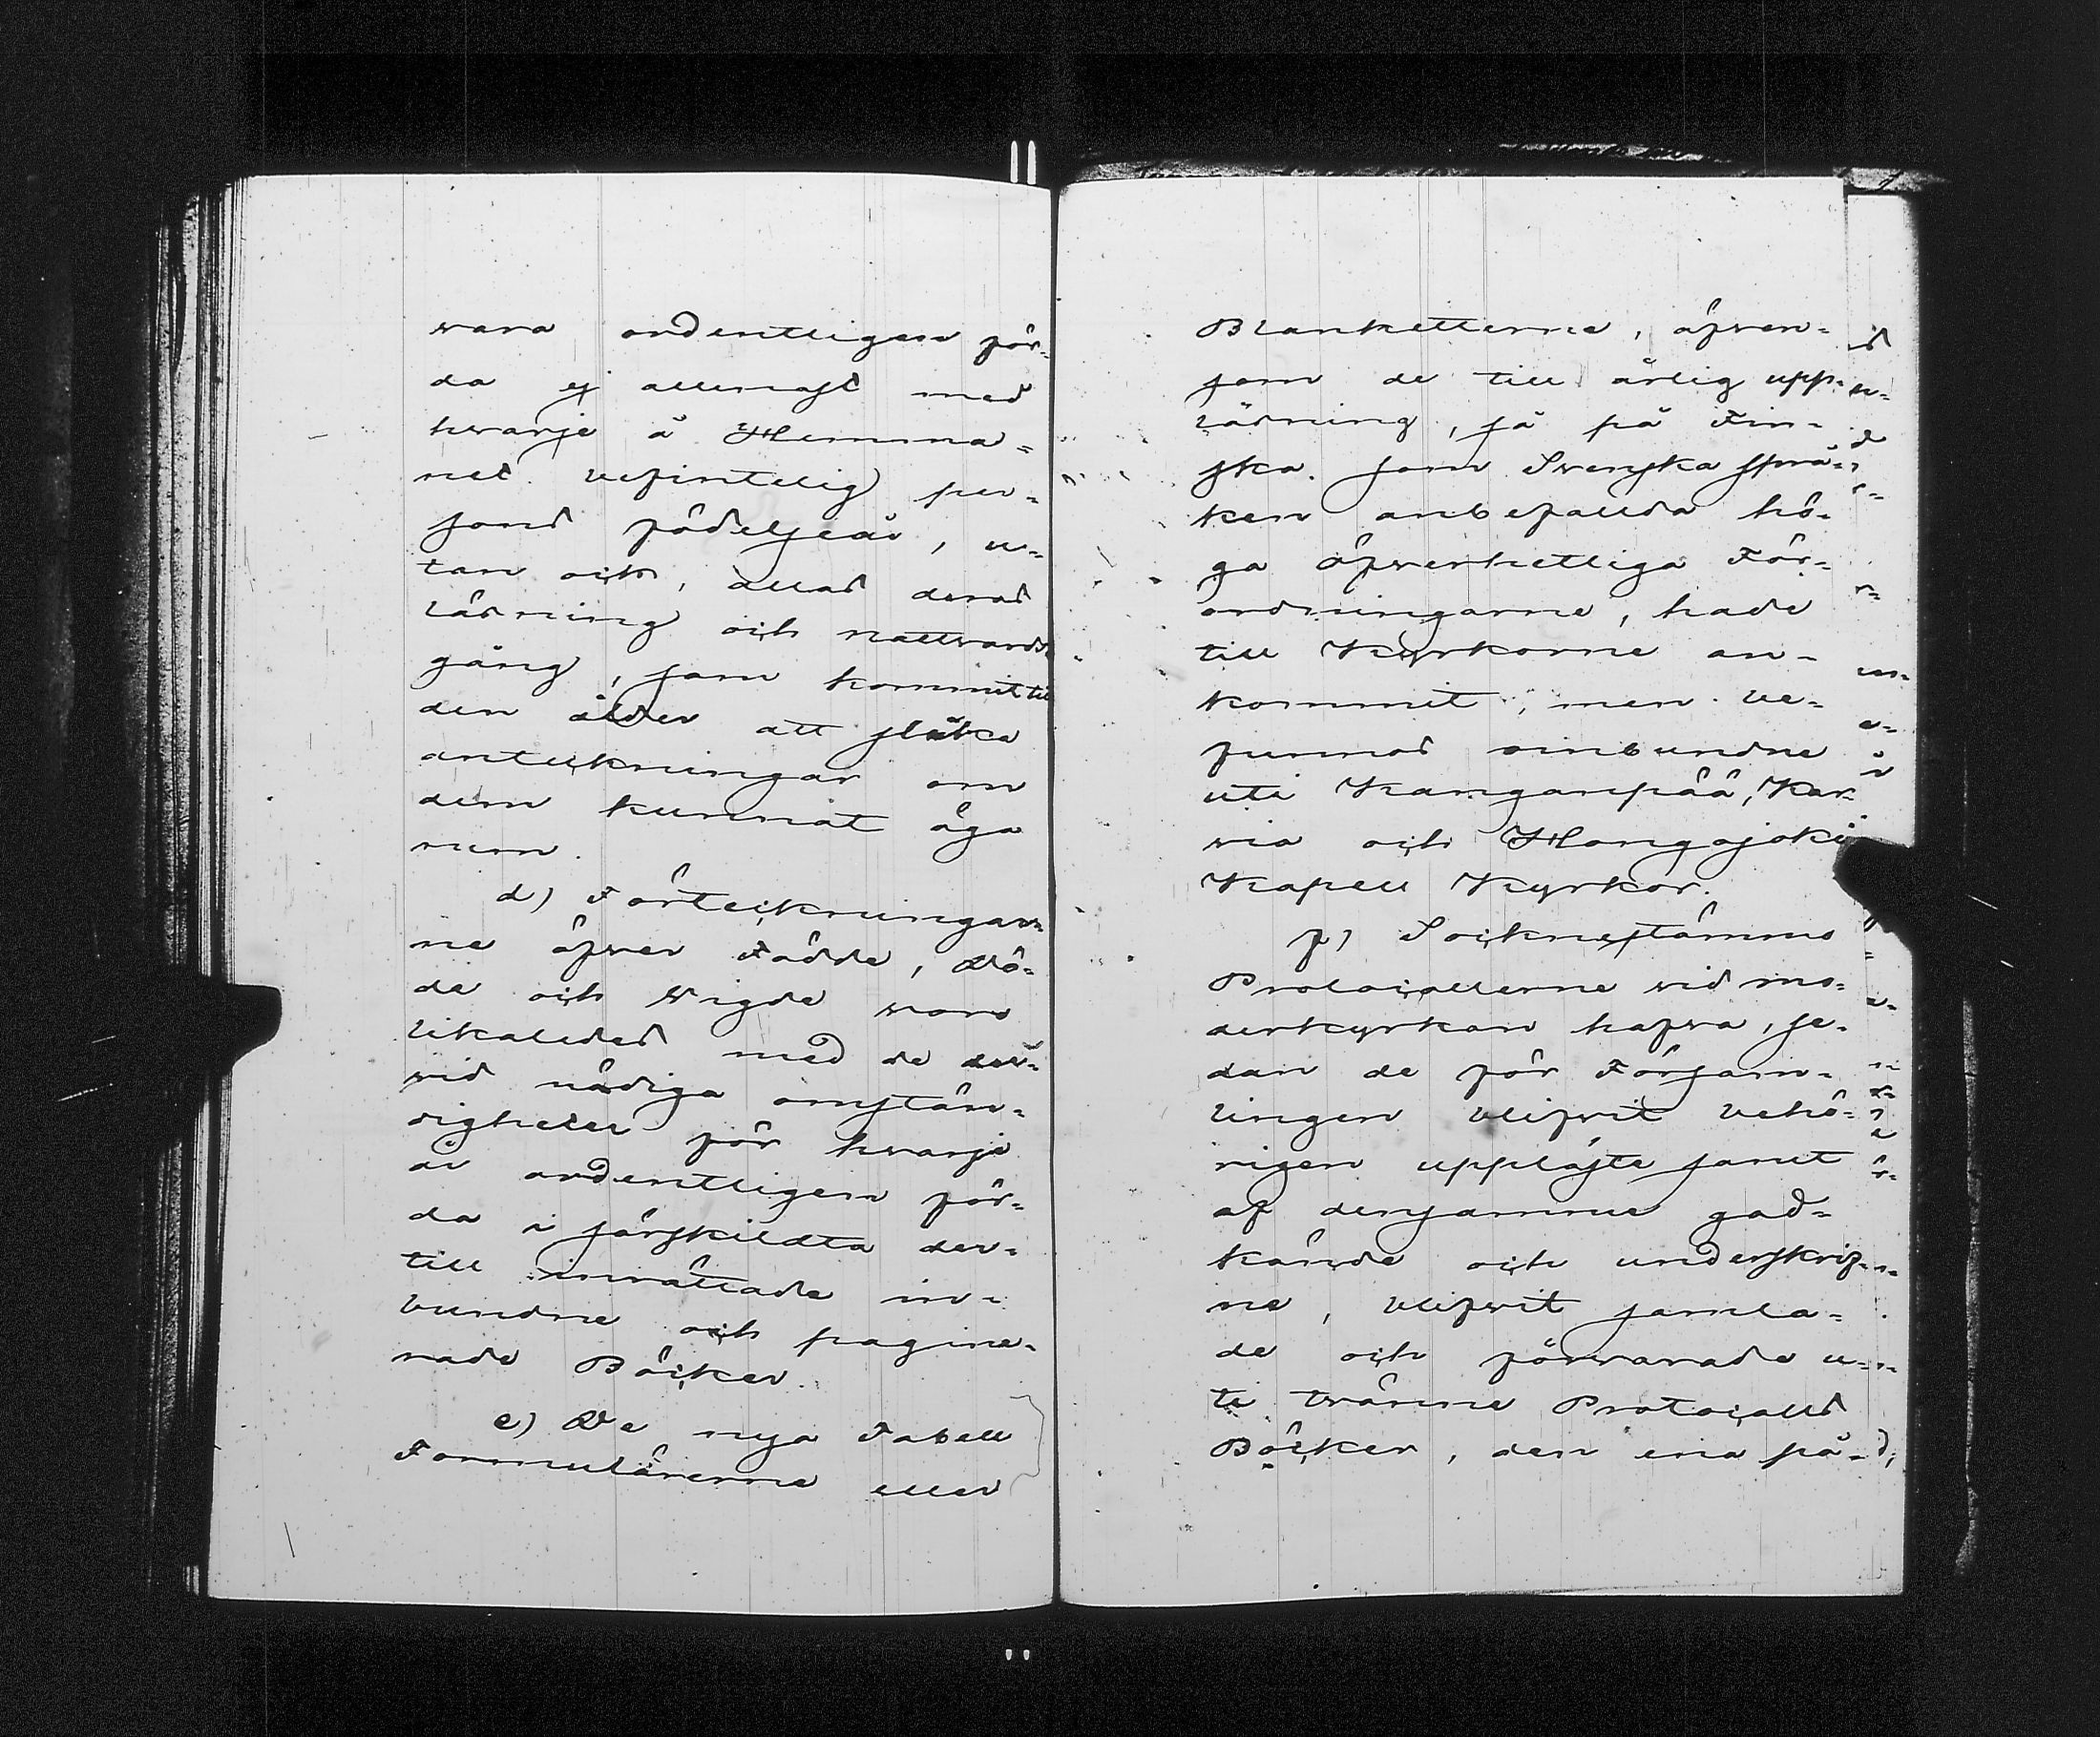 wara ordentligen för-
da ej allenast med
hvarje å Hemma-
net befintelig per-
sons födelseår, u-
tan och, allas deras
läsning och nattvards-
gång, som kommit till
den ålder att slika
anteckningar om
dem kunnat äga
rum.
d) Förteckningar-
ne öfver Födde, Dö-
de och Wigde woro
likaledes med de der-
wid nödiga omstän-
digheter för hvarje
år ordentligen för-
da i särskildta der-
till inrättade in-
bundne och pagine-
rade Böcker.
e) De nya Tabell
Formulärerne eller
Blanketterne, äfven-
som de till årlig upp-
läsning, så på Fin-
ska som Svenska språ-
ken anbefallda hö-
ga öfverhetliga För-
ordningarne, hade
till Kyrkorne an-
kommit, men be-
funnos oinbundne
uti Kanganpää, Kar-
via och Hongojoki
Kapell Kyrkor.
f) Sockenstämmo
Protocollerne vid mo-
derkyrkan hafva, se-
dan de för Försam-
lingen blifvit behö-
rigen uppläste samt
af densamme god-
kände och underskrif-
ne, blifvit samla-
de och förvarade u-
ti tvänne Protocolls
Böcker, den ena på-